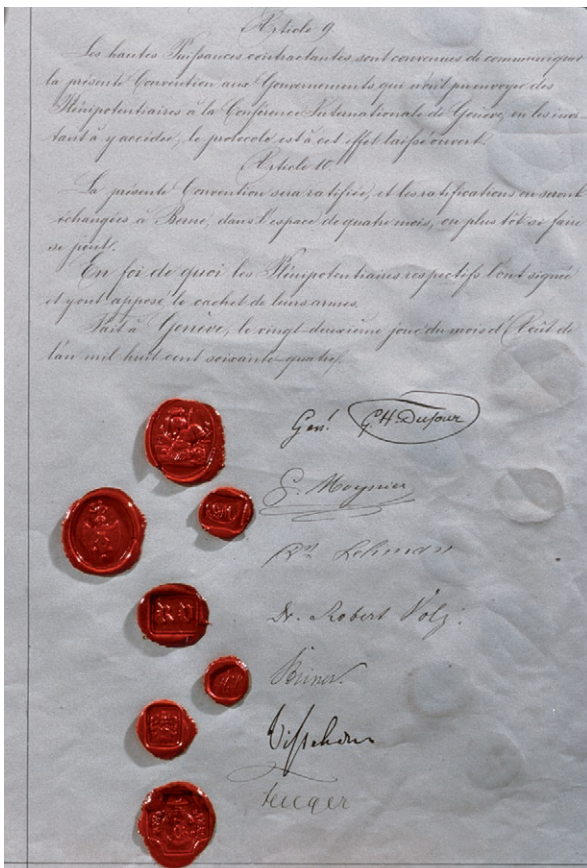 Article 9.
Les hautes Puissances contractantes sont convenues de communiquer
la présente Convention aux Gouvernements qui n'ont pu envoyer des
Plénipotentiaires à la Conférence Internationale de Genève, en les invi-
tant à y accéder; le protocole est à cet effet laissé ouvert.
Article 10.
La présente Convention sera ratifiée, et les ratifications en seront
échangées à Berne, dans l'espace de quatre mois, ou plus tôt si faire
se peut.
En foi de quoi les Plénipotentiaires respectifs l'ont signée
et y ont apposé le cachet de leurs armes.
Fait à Genève, le vingt-deuxième jour du mois d'Août de
l'an mil huit cent soixante-quatre.
Genl. G. H. Dufour
G. Moynier
Lehmann
Dr. Robert Volz.
Steiner.
Visschers
Fenger